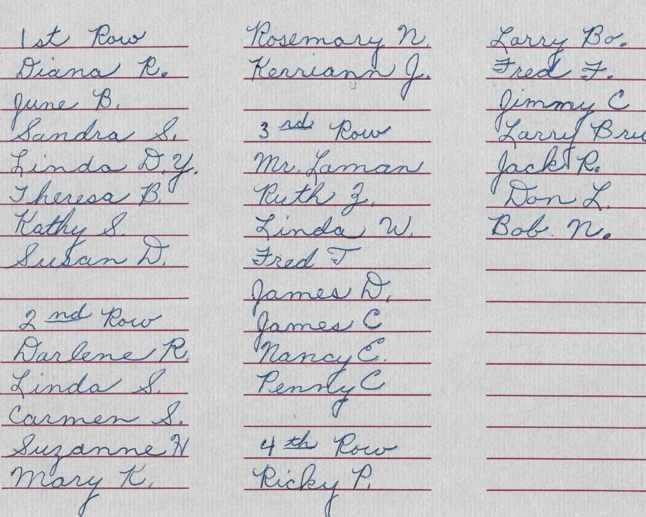 1st Row
Diana R.
June B.
Sandra S.
Linda D.Y.
Theresa B.
Kathy S.
Susan D.
2nd Row
Darlene R.
Linda S.
Carmen S.
Suzanne H
Mary K.
Rosemary N.
Kerriann J.
3rd Row
Mr. Laman
Ruth Z.
Linda W.
Fred T
James D.
James C
Nancy C.
Penny C
4th Row
Ricky P.
Larry Bo.
Fred F.
Jimmy C
Larry Bru
Jack R.
Don L.
Bob N.